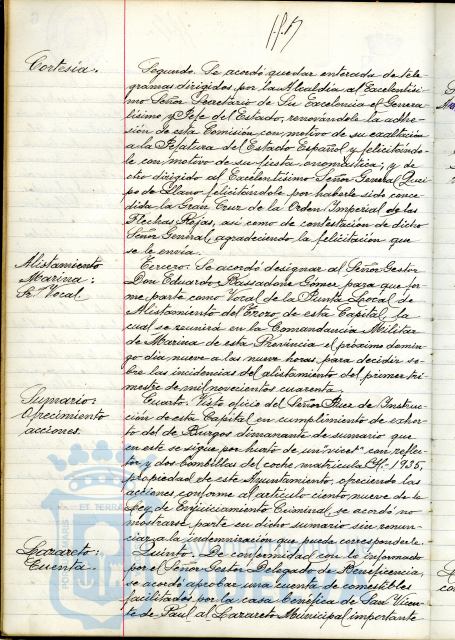 Cortesía.
Segundo. Se acordó quedar enterada de tele-
gramas dirigidos por la Alcaldía al Excelentísi-
mo Señor Secretario de Su Excelencia el Genera-
lísimo y Jefe del Estado, renovándole la adhe-
sión de esta Comisión con motivo de su exaltación
a la Jefatura del Estado Español y felicitándo-
le con motivo de su fiesta onomástica; y de
otro dirigido al Excelentísimo Señor General Quei-
po de Llano felicitándole por haberle sido conce-
dida la Gran Cruz de la Orden Imperial de las
Flechas Rojas, así como de contestación de dicho
Señor General, agradeciendo la felicitación que
se le envía.
Alistamiento
Marina:
Sr. Vocal.
Tercero. Se acordó designar al Señor Gestor
Don Eduardo Bassadone Gómez para que for-
me parte como Vocal de la Junta Local de
Alistamiento del Trozo de esta Capital, la
cual se reunirá en la Comandancia Militar
de Marina de esta Provincia el próximo domin-
go día nueve a las nueve horas para decidir so-
bre las incidencias del alistamiento del primer tri-
mestre de mil novecientos cuarenta.
Sumario:
Ofrecimiento
acciones.
Cuarto. Visto oficio del Señor Juez de Instruc-
ción de esta Capital en cumplimiento de exhor-
to del de Burgos dimanante de sumario que
en éste se sigue por hurto de un con reflec-
tor y dos bombillas del coche matrícula CA-1935,
propiedad de este Ayuntamiento, ofreciendo las
acciones conforme al artículo ciento nueve de la
Ley de Enjuiciamiento Criminal, se acordó no
mostrarse parte en dicho sumario sin renun-
ciar a la indemnización que pueda corresponderle.
Lazareto:
Cuenta.
Quinto. De conformidad con lo informado
por el Señor Gestor Delegado de Beneficencia,
se acordó aprobar una cuenta de comestibles
facilitados por la casa benéfica de San Vicen-
te de Paul al Lazareto Municipal importante